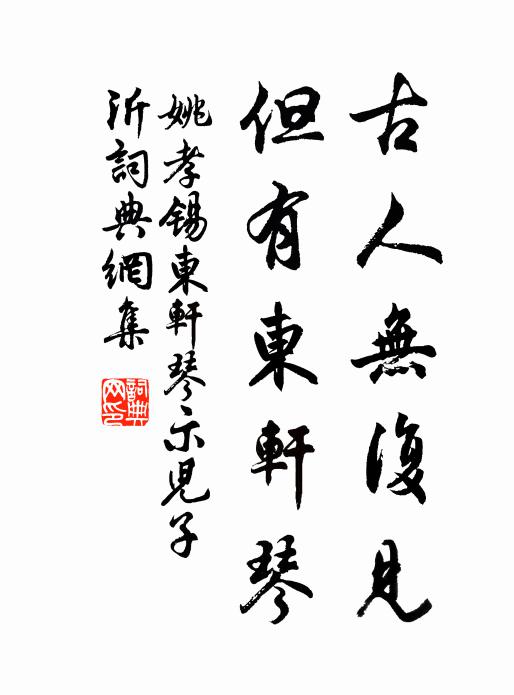 古人無復見
但有東軒琴
姚孝錫東軒琴示兒子沂
詞典網集
詞典网印